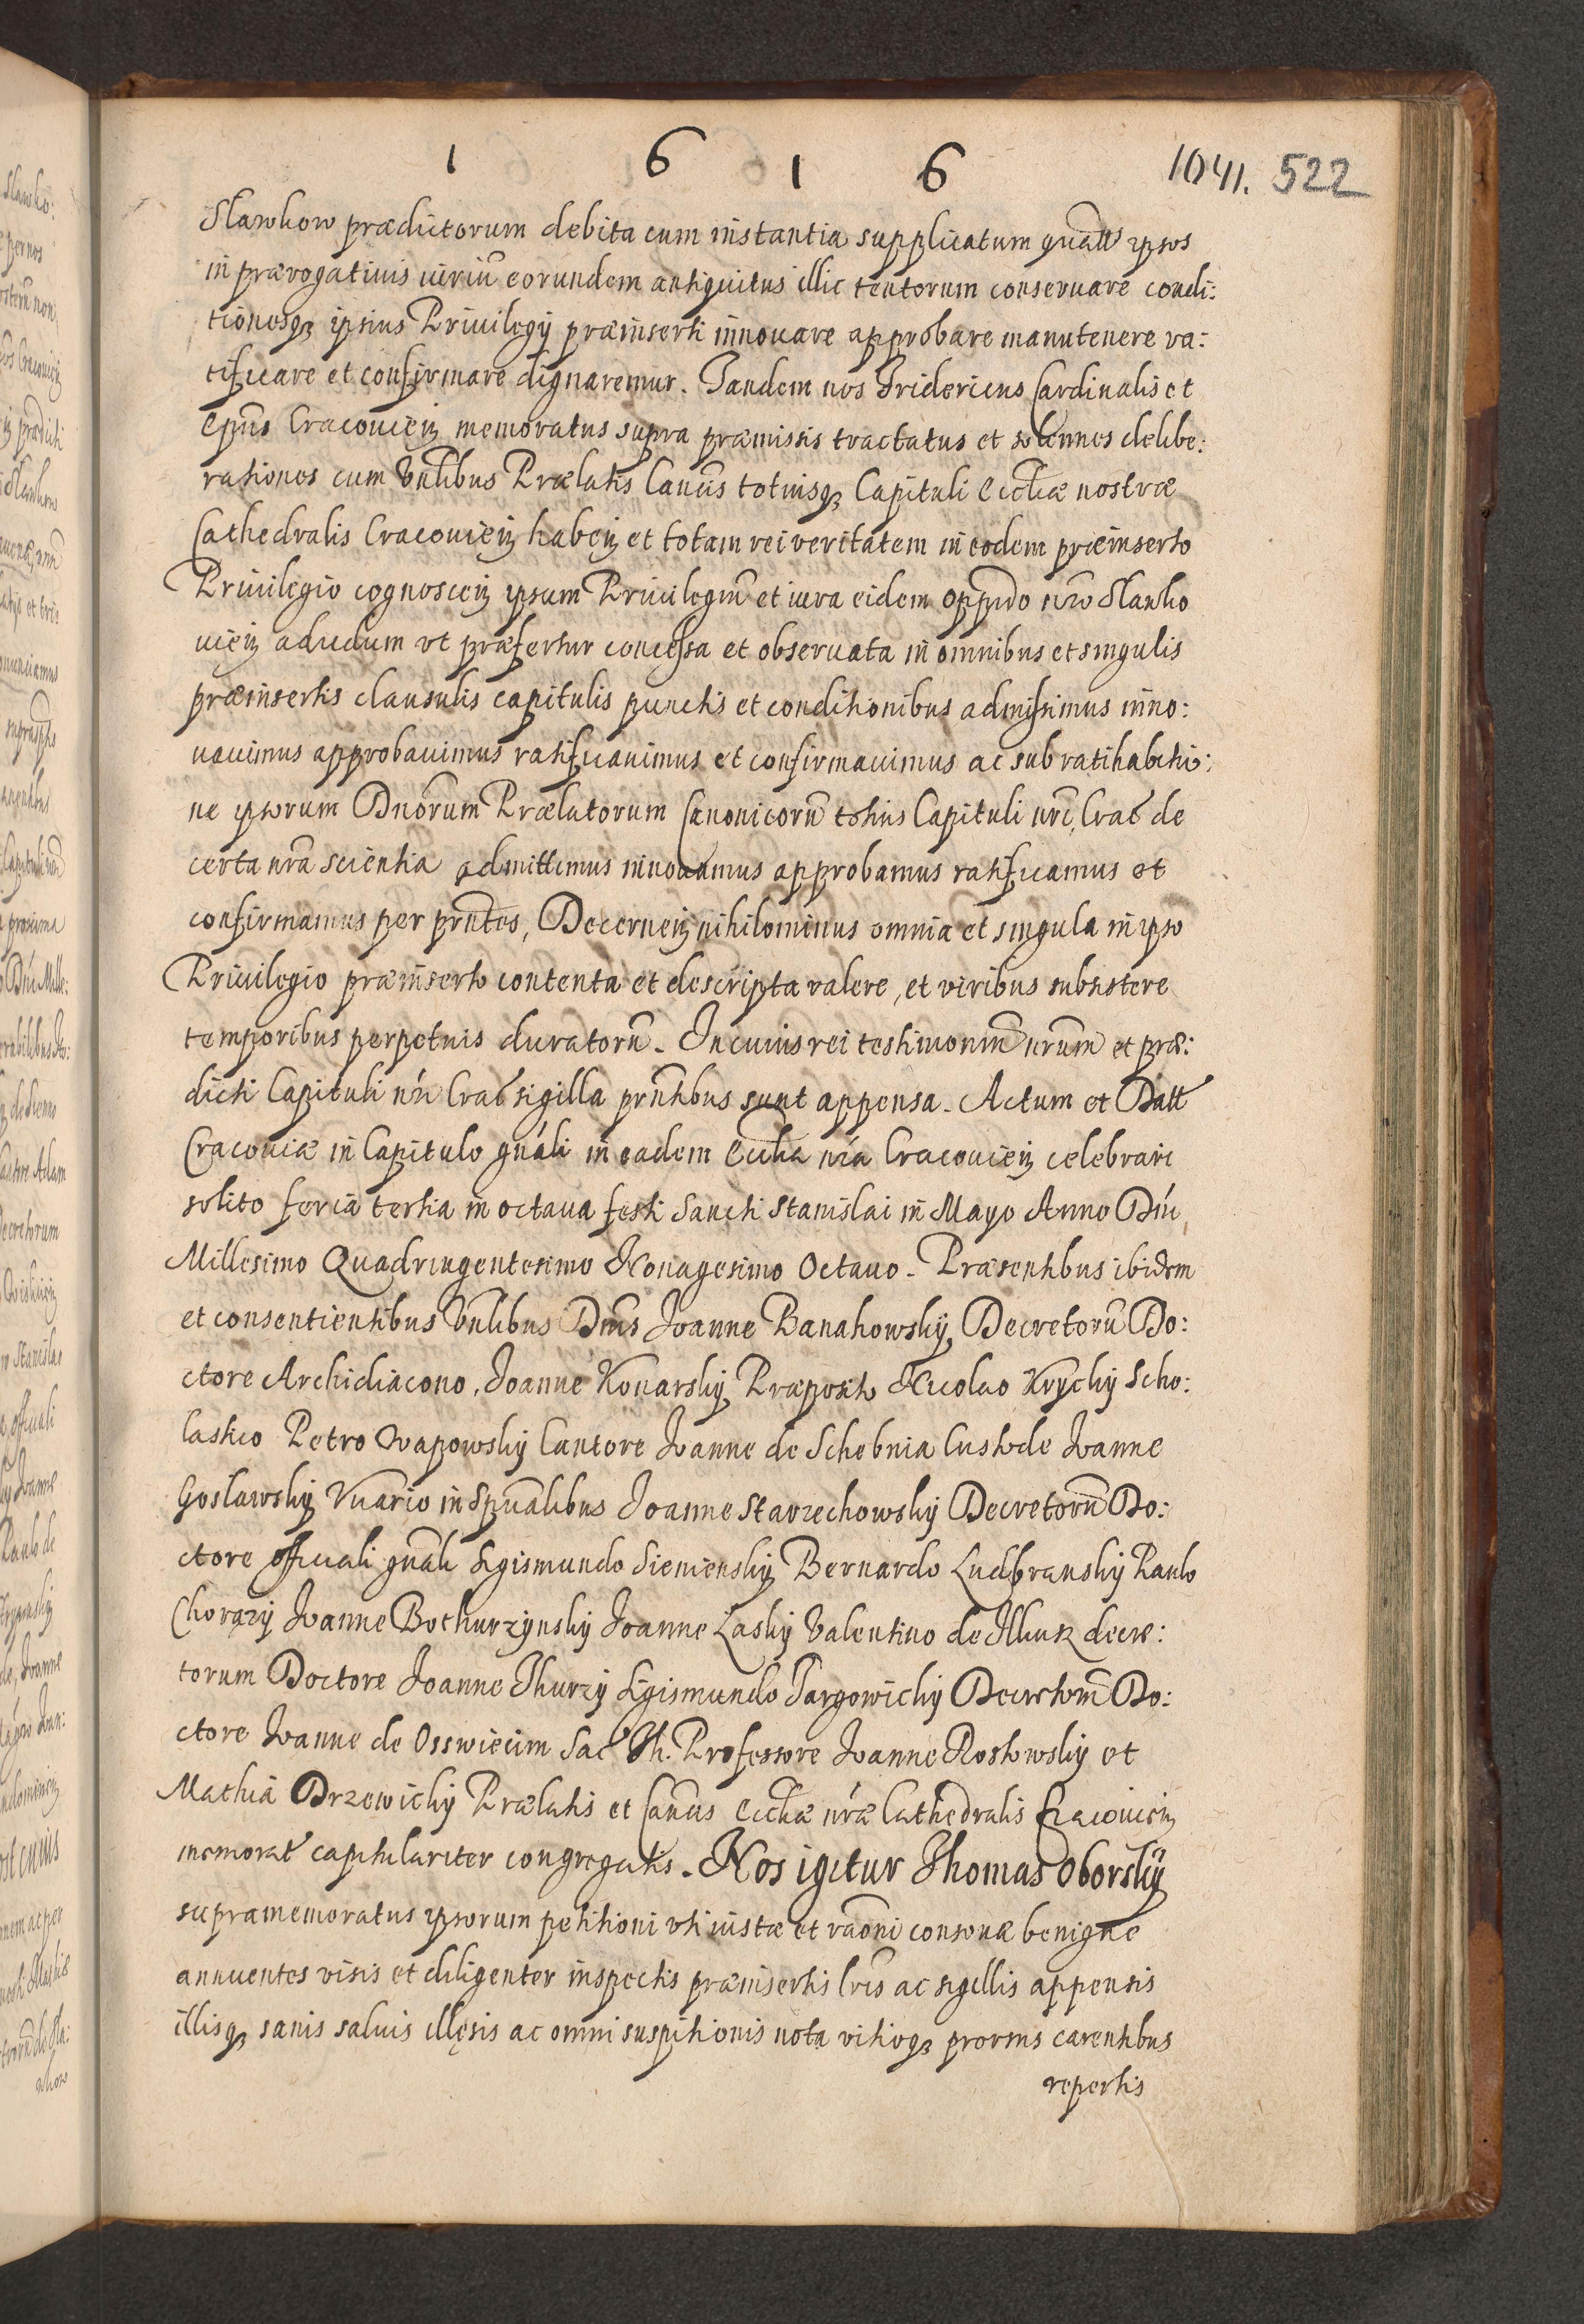 1 6 1 6
1041. 522
Slawkow prædictorum debita cum instantia supplicatum quatt ipsos
in prærogativis iuriũ eorundem antiquitus illic tentorum conseruare condi:
tionesq; ipsius Priuilegij præinserti innouare approbare manutenere ra:
tificare et confirmare dignaremur. Tandem nos Fridericus Cardinalis et
Epũs Cracouień memoratus supra præmissis tractatus et solennes delibe:
rationes cum Vnlibus Prælatis Cancis totiusq; Capituli Ecctiæ nostræ
Cathedralis Cracouień habeń et totam rei veritatem in eodem præinserto
Priuilegio cognosceń ipsum Priuilegiũ et iura eidem oppido nro Slawko
uień adudum vt præfertur concessa et obseruata in omnibus et singulis
præinsertis clausulis capitulis punctis et conditionibus admissimus inno:
uauimus approbauimus ratificauimus et confirmauimus ac sub ratihabitio:
ne ipsorum Dnorum Prælatorum Canonicorũ totius Capituli nri, Crac de
certa nra scientia admittimus innouamus approbamus ratificamus et
confirmamus per prntes, Decerneń nihilominus omnia et singula in ipso
Priuilegio præinserto contenta et descripta valere, et viribus subsistere
temporibus perpetuis duratorũ. In cuius rei testimoniũ nrum et præ:
dicti Capituli nri Crac sigilla prntibus sunt appensa. Actum et Datt
Cracouiæ in Capitulo gnáli in eadem Ecctia nrá Cracouień celebrari
solito feria tertia in octaua festi Sancti Stanislai in Mayo Anno Dni,
Millesimo Quadringentesimo Nonagesimo Octauo. Præsentibus ibidem
et consentientibus Vnlibus Dnis Joanne Banahowskij Decretorũ Do:
ctore Archidiacono, Joanne Konarskij Præposito Nicolao Krychij Scho:
lastico Petro Wapowskij Cantore Joanne de Schebnia Custode Joanne
Goslawskij Vicario in Spũalibus Joanne Starzechowskij Decretorũ Do:
ctore officiali gnáli Sigismundo Sienienskij Bernardo Ludbranskij Paulo
Chorązij Joanne Bochurzynskij Joanne Laskij Valentino de Ilkusz decre:
torum Doctore Joanne Thurzij Sigismundo Targowichij Decretorũ Do:
ctore Joanne de Osswiecim Sac Th. Professore Joanne Rostowskij et
Mathia Drzewichij Prælatis et Cancis Ecctiæ nráæ Cathedralis Cracouień
memorat capitulariter congregatis. Nos igitur Thomas Oborskij
supramemoratus ipsorum petitioni vti iustæ et raoni consonæ benigne
annuentes visis et diligenter inspectis præinsertis lris ac sigillis appensis
illisq; sanis saluis illęsis ac omni suspitionis nota vitioq; prorsus carentibus
repertis